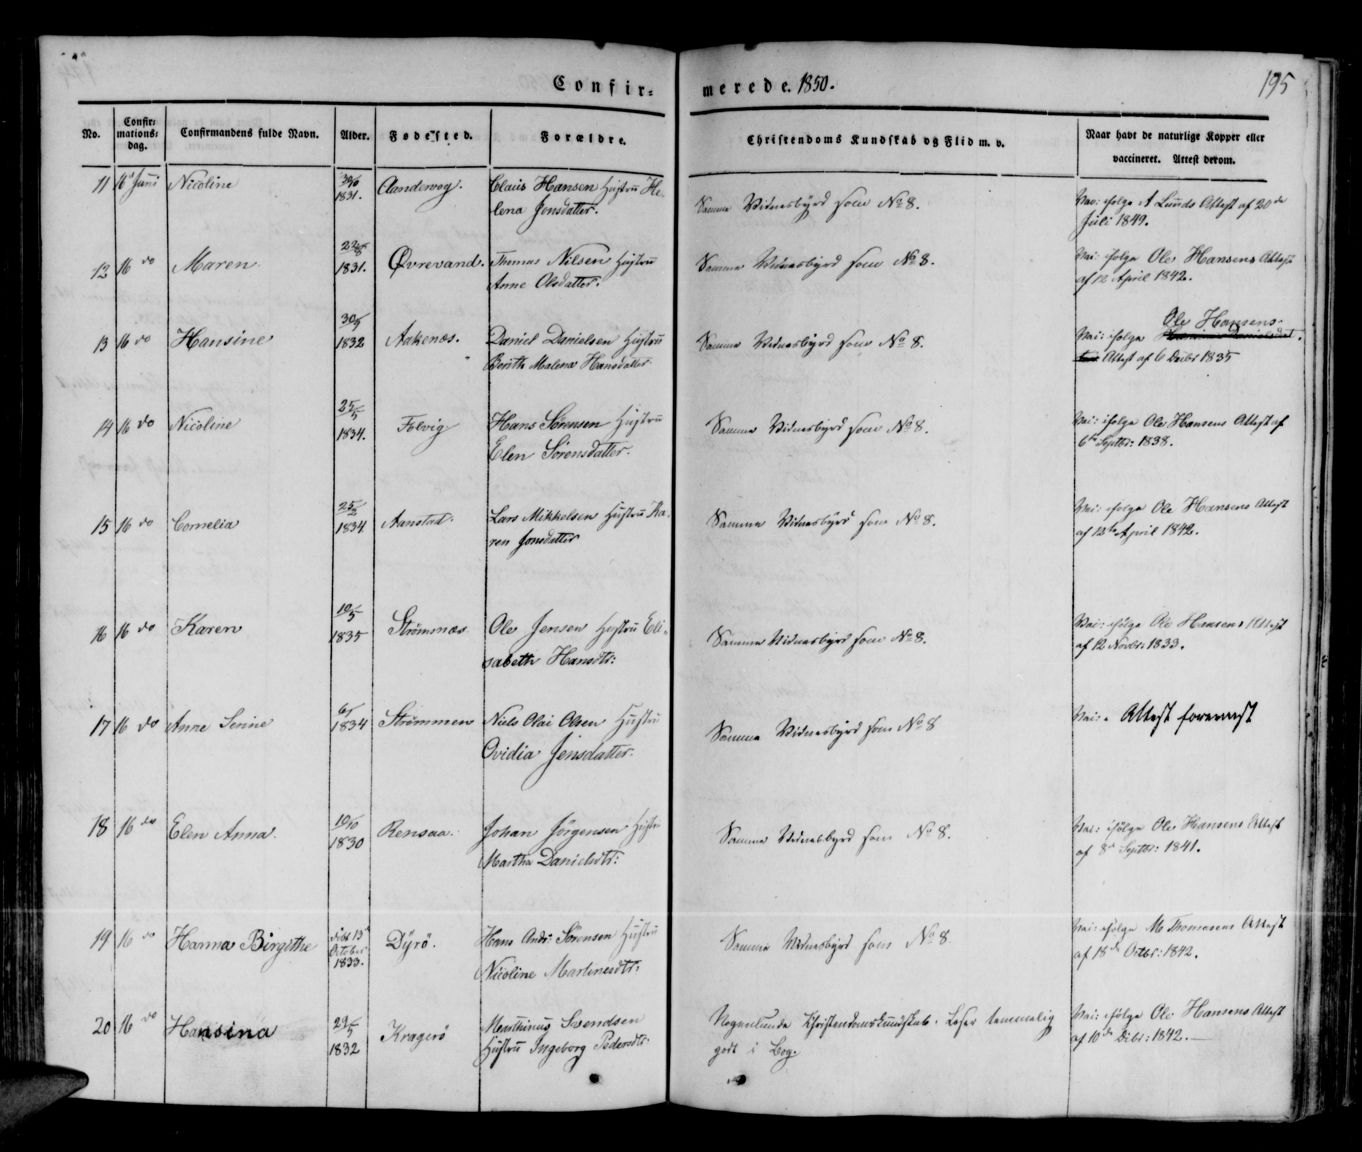 Confir-
merede. 1850.
195
No.
Confir-
mations-
dag.
Confirmandens fulde Navn.
Alder.
Fødested.
Forældre.
Christendoms Kundskab og Flid m. v.
Naar havt de naturlige Kopper eller
vaccineret. Attest derom.
11 16d Juni Nicoline 1831. Claus Hansen Hustru He-
lena Jonsdatter. Samme Vidnesbyrd som No 8. Vac: ifølge A Lunds Attest af 20de
Juli 1849.
12 16 do Maren 1831. Øvrevand. Thomas Nilsen Hustru
Anne Olsdatter. Samme Vidnesbyrd som No 8. Vac: ifølge Ole Hansens Attest
af 12 April 1842.
13 16 do Hansine 30/5 1832 Aakenæs. Daniel Danielsen Hustru
Berith Malena Hansdatter Samme Vidnesbyrd som No 8. Vac: ifølge Ole Hansens
Attest af 6 Decbr 1835
14 16 do Nicoline 25/5 1834. Folvig Hans Sørensen Hustru
Elen Sørensdatter. Samme Vidnesbyrd som No 8. Vac: ifølge Ole Hansens Attest af
6te Septbr: 1838.
15 16 do Cornelia 1834 Aanstad. Lars Mikkelsen Hustru Ka-
ren Jonsdatter Samme Vidnesbyrd som No 8. Vac: ifølge Ole Hansens Attest
af 12te April 1842.
16 16 do Karen 10/5 1835 Strømsnæs Ole Jensen Hustru Eli-
sabeth Hansdtr: Samme Vidnesbyrd som No 8. Vac: ifølge Ole Hansens Attest
af 12 Novbr: 1833.
17 16 do Anne Senine 1834 Strømmen Niels Olai Olsen Hustru
Ovidia Jensdatter. Samme Vidnesbyrd som No 8 Vac: Attest forevist
18 16 do Elen Anna. 1830 Rensaa. Johan Jörgensen Hustru
Martha Danielsdtr: Samme Vidnesbyrd som No 8. Vac: ifølge Ole Hansens Attest
af 8de Septbr: 1841.
19 16 do Hanna Birgithe 13de
October
1833. Dyrö. Hans Andr Sørensen Hustru
Nicoline Martinesdtr: Samme Vidnesbyrd som No 8. Vac: ifølge M Thomesens Attest
af 18de Octbr: 1842.
20 16 do Hansina 29/5 1832 Kragerö Marthinus Svendsen
Hustru Ingeborg Pedersdtr: Nogenlunde Christendomskundskab. Læser temmelig
godt i Bog. Vac: ifølge Ole Hansens Attest
af 10de Dcbr: 1842.